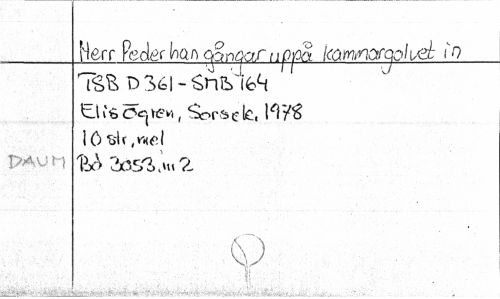 Herr Peder han gångar uppå kammargolvet in
TSB D 361 - SMB 164
Elis Ögren, Sorsele, 1978
10 str, mel
DAUM Bd 3053, m 2